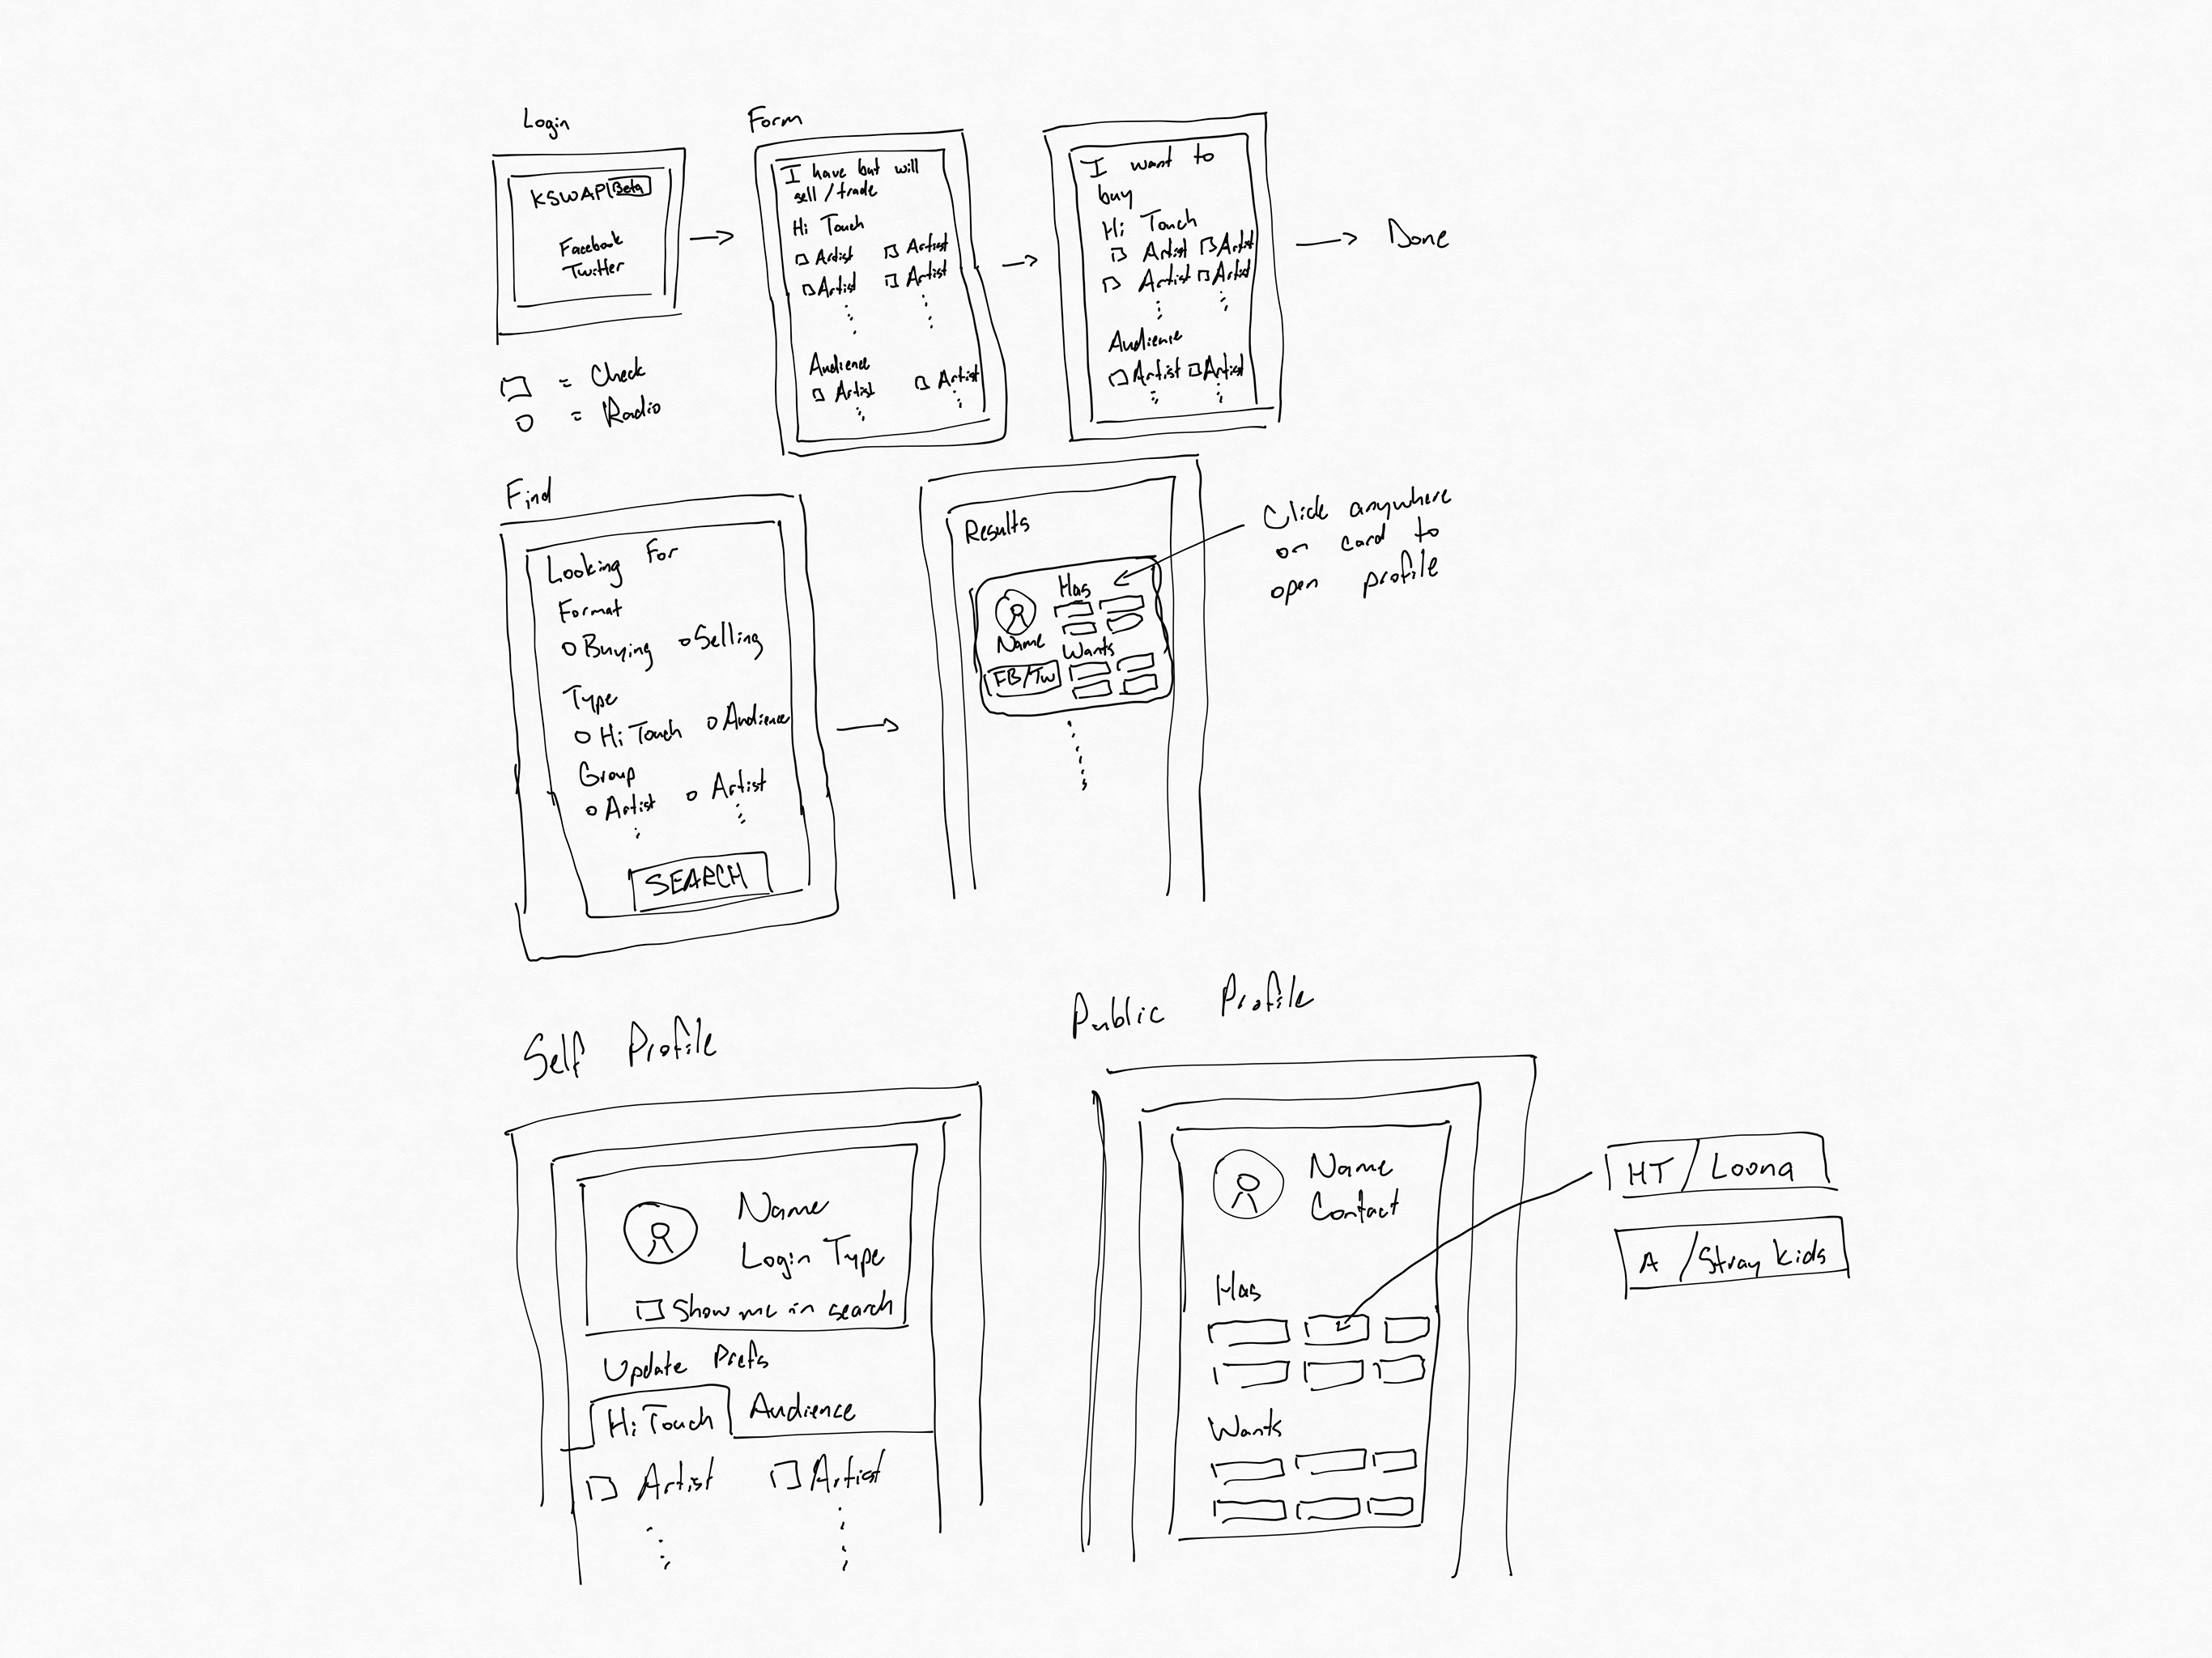 Login
KSWAP Beta
Facebook
Twitter
□ = Check
○ = Radio
Form
I have but will
sell / trade
Hi Touch
□ Artist □ Artist
□ Artist □ Artist
Audience
□ Artist □ Artist
I want to
buy
Hi Touch
□ Artist □ Artist
□ Artist □ Artist
Audience
□ Artist □ Artist
Done
Find
Looking For
Format
○ Buying ○ Selling
Type
○ Hi Touch ○ Audience
Group
○ Artist ○ Artist
SEARCH
Results
Has
Name
Wants
FB/Tw
Click anywhere
on card to
open profile
Self Profile
Name
Login Type
□ Show me in search
Update Prefs
Hi Touch Audience
□ Artist □ Artist
Public Profile
Name
Contact
Has
Wants
HT / Loona
A / Stray Kids